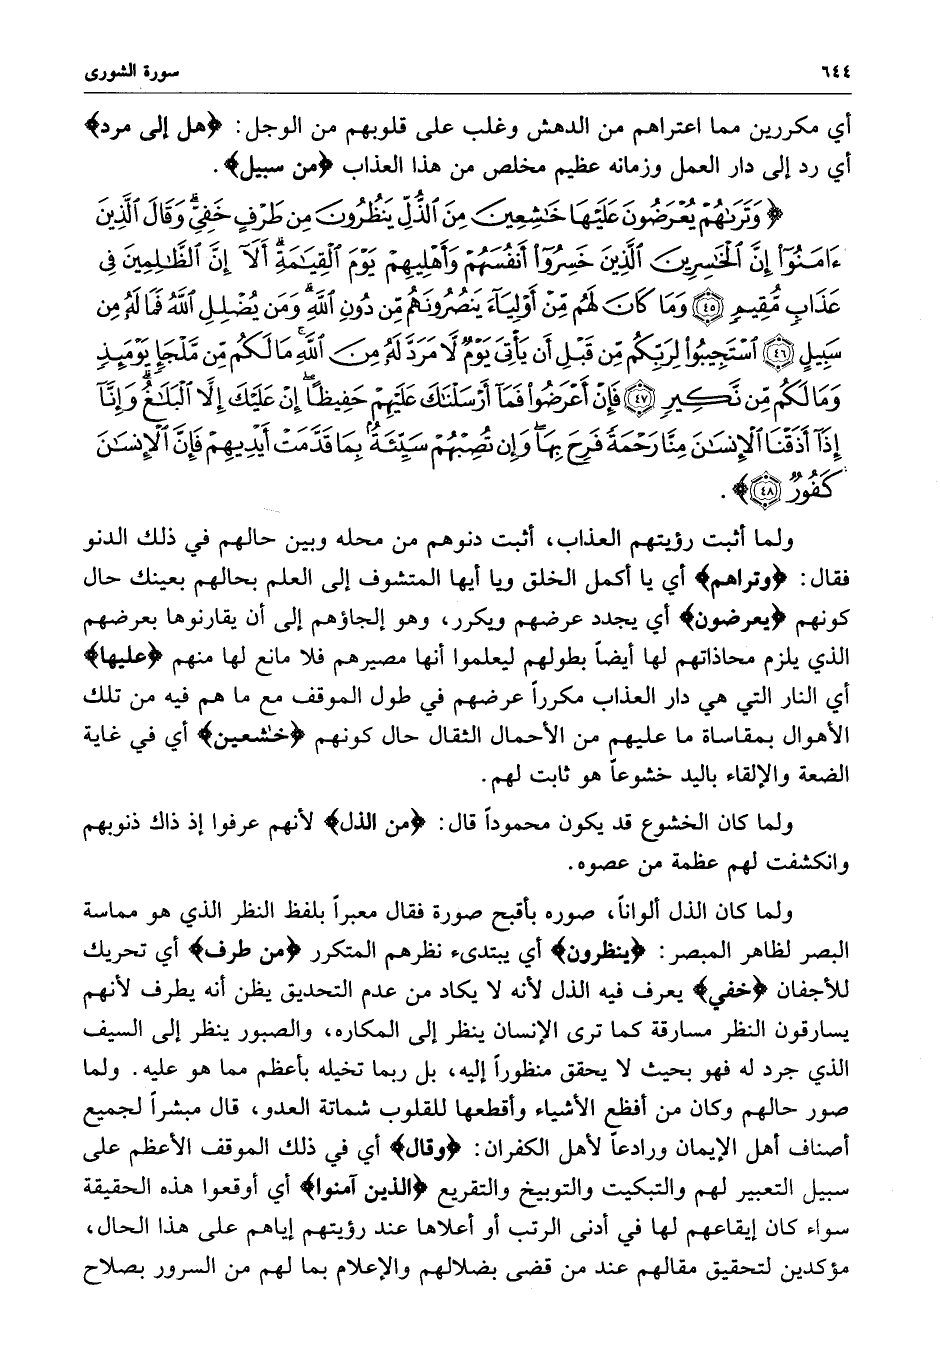 ٦٤٤ سورة الشورى
أي مكررين مما اعتراهم من الدهش وغلب على قلوبهم من الوجل: ﴿هل إلى مرد﴾
أي رد إلى دار العمل وزمانه عظيم مخلص من هذا العذاب ﴿من سبيل﴾.
﴿وَتَرَىٰهُمْ يُعْرَضُونَ عَلَيْهَا خَٰشِعِينَ مِنَ ٱلذُّلِّ يَنظُرُونَ مِن طَرْفٍ خَفِيٍّ ۗ وَقَالَ ٱلَّذِينَ
ءَامَنُوٓا۟ إِنَّ ٱلْخَٰسِرِينَ ٱلَّذِينَ خَسِرُوٓا۟ أَنفُسَهُمْ وَأَهْلِيهِمْ يَوْمَ ٱلْقِيَٰمَةِ ۗ أَلَآ إِنَّ ٱلظَّٰلِمِينَ فِى
عَذَابٍ مُّقِيمٍ ﴿٤٥﴾ وَمَا كَانَ لَهُم مِّنْ أَوْلِيَآءَ يَنصُرُونَهُم مِّن دُونِ ٱللَّهِ ۗ وَمَن يُضْلِلِ ٱللَّهُ فَمَا لَهُۥ مِن
سَبِيلٍ ﴿٤٦﴾ ٱسْتَجِيبُوا۟ لِرَبِّكُم مِّن قَبْلِ أَن يَأْتِىَ يَوْمٌ لَّا مَرَدَّ لَهُۥ مِنَ ٱللَّهِ ۚ مَا لَكُم مِّن مَّلْجَإٍ يَوْمَئِذٍ
وَمَا لَكُم مِّن نَّكِيرٍ ﴿٤٧﴾ فَإِنْ أَعْرَضُوا۟ فَمَآ أَرْسَلْنَٰكَ عَلَيْهِمْ حَفِيظًا ۖ إِنْ عَلَيْكَ إِلَّا ٱلْبَلَٰغُ ۗ وَإِنَّآ
إِذَآ أَذَقْنَا ٱلْإِنسَٰنَ مِنَّا رَحْمَةً فَرِحَ بِهَا ۖ وَإِن تُصِبْهُمْ سَيِّئَةٌۢ بِمَا قَدَّمَتْ أَيْدِيهِمْ فَإِنَّ ٱلْإِنسَٰنَ
كَفُورٌ ﴿٤٨﴾﴾.
ولما أثبت رؤيتهم العذاب، أثبت دنوهم من محله وبين حالهم في ذلك الدنو
فقال: ﴿وتراهم﴾ أي يا أكمل الخلق ويا أيها المتشوف إلى العلم بحالهم بعينك حال
كونهم ﴿يعرضون﴾ أي يجدد عرضهم ويكرر، وهو إلجاؤهم إلى أن يقارنوها بعرضهم
الذي يلزم محاذاتهم لها أيضاً بطولهم ليعلموا أنها مصيرهم فلا مانع لها منهم ﴿عليها﴾
أي النار التي هي دار العذاب مكرراً عرضهم في طول الموقف مع ما هم فيه من تلك
الأهوال بمقاساة ما عليهم من الأحمال الثقال حال كونهم ﴿خٰشعين﴾ أي في غاية
الضعة والإلقاء باليد خشوعاً هو ثابت لهم.
ولما كان الخشوع قد يكون محموداً قال: ﴿من الذل﴾ لأنهم عرفوا إذ ذاك ذنوبهم
وانكشفت لهم عظمة من عصوه.
ولما كان الذل ألواناً، صوره بأقبح صورة فقال معبراً بلفظ النظر الذي هو مماسة
البصر لظاهر المبصر: ﴿ينظرون﴾ أي يبتدىء نظرهم المتكرر ﴿من طرف﴾ أي تحريك
للأجفان ﴿خفي﴾ يعرف فيه الذل لأنه لا يكاد من عدم التحديق يظن أنه يطرف لأنهم
يسارقون النظر مسارقة كما ترى الإنسان ينظر إلى المكاره، والصبور ينظر إلى السيف
الذي جرد له فهو بحيث لا يحقق منظوراً إليه، بل ربما تخيله بأعظم مما هو عليه. ولما
صور حالهم وكان من أفظع الأشياء وأقطعها للقلوب شماتة العدو، قال مبشراً لجميع
أصناف أهل الإيمان ورادعاً لأهل الكفران: ﴿وقال﴾ أي في ذلك الموقف الأعظم على
سبيل التعيير لهم والتبكيت والتوبيخ والتقريع ﴿الذين آمنوا﴾ أي أوقعوا هذه الحقيقة
سواء كان إيقاعهم لها في أدنى الرتب أو أعلاها عند رؤيتهم إياهم على هذا الحال،
مؤكدين لتحقيق مقالهم عند من قضى بضلالهم والإعلام بما لهم من السرور بصلاح